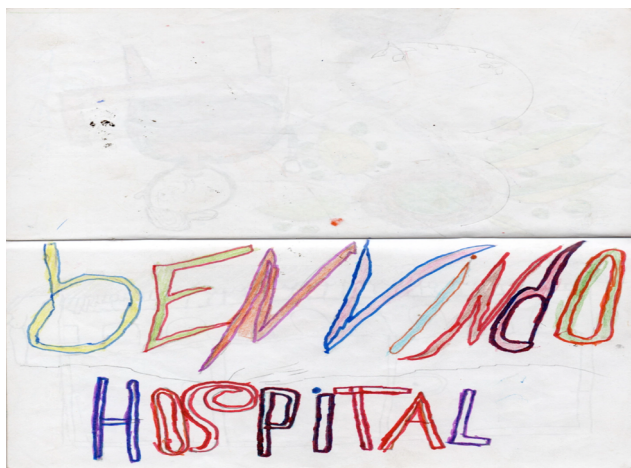 bENVINdO
HOSPiTAL